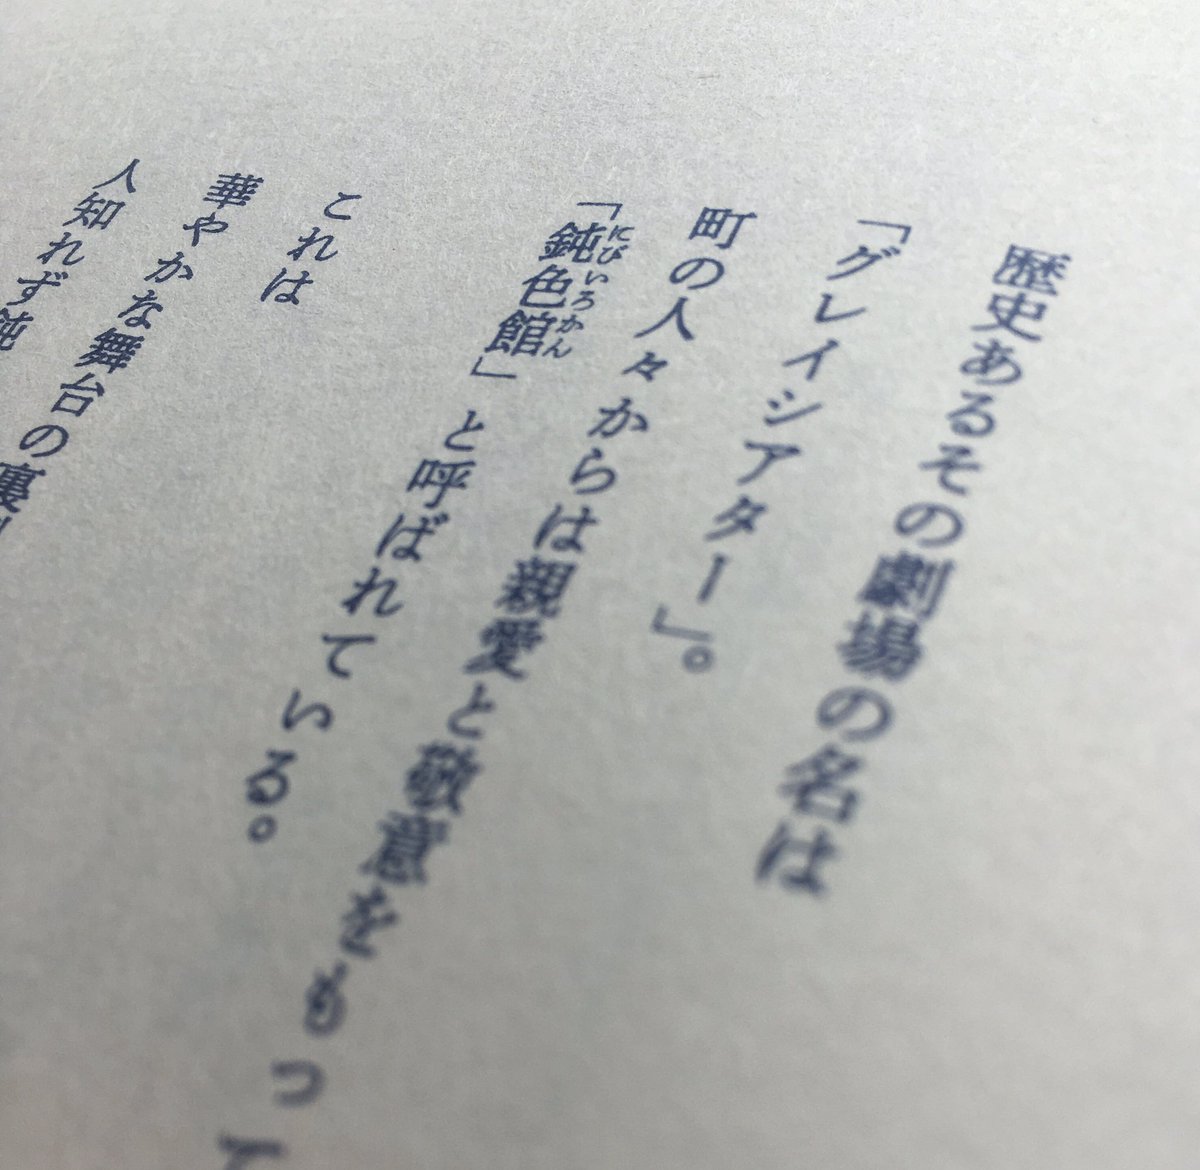 歴史あるその劇場の名は
「グレイシアター」。
町の人々からは親愛と敬意をもって
「鈍色館」と呼ばれている。
にびいろかん
これは
華やかな舞台の裏
人知れず鈍